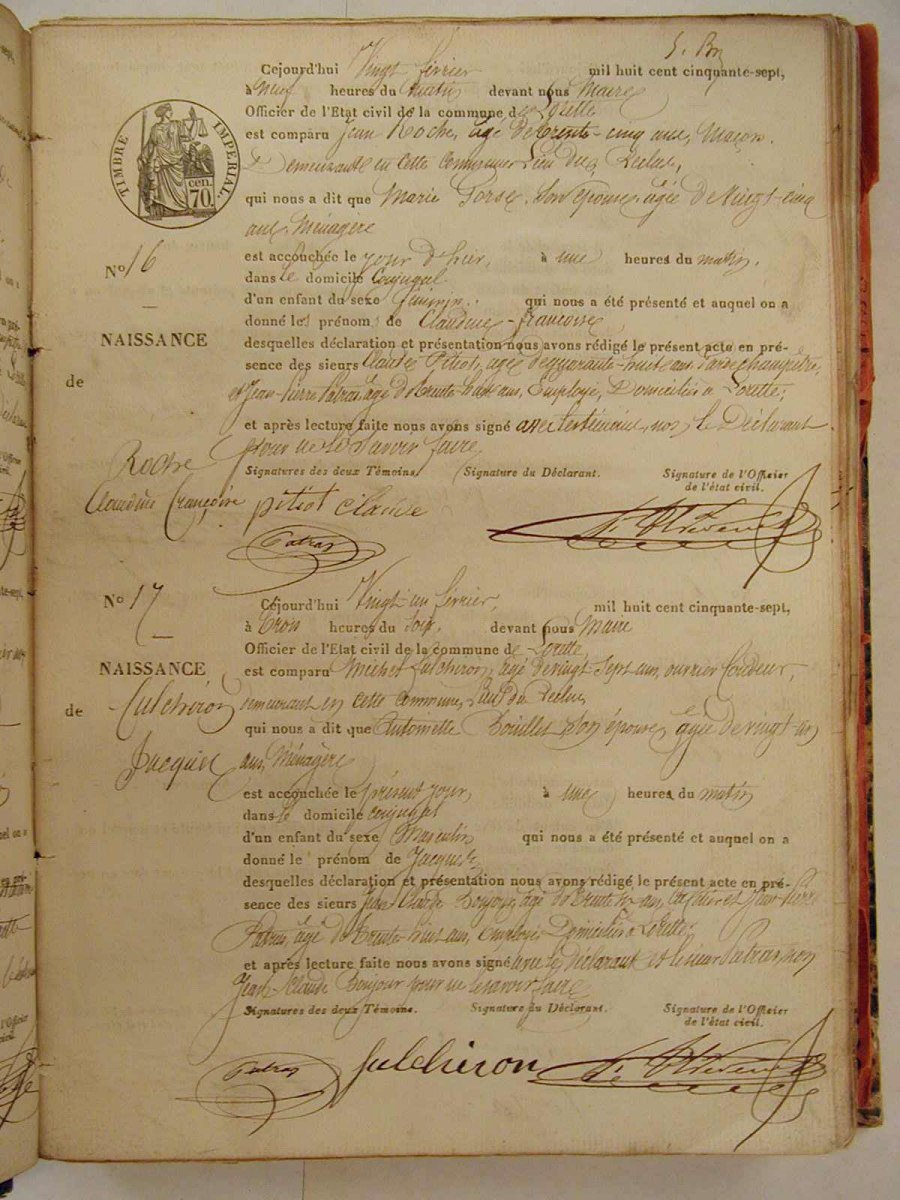 Cejourd'hui Vingt février mil huit cent cinquante-sept,
à Neuf heures du Matin devant nous Maire
Officier de l'Etat civil de la commune de Lorette
est comparu Jean Roche, âgé de trente-cinq ans, Maçon
Demeurant en cette Commune Lieu du
qui nous a dit que Marie Son épouse, agée de Vingt-cinq
ans, Ménagère
TIMBRE IMPERIAL.
cen.
70.
No 16
NAISSANCE
de
Roche
Claudine Françoise
est accouchée le jour d'hier, à une heures du matin,
dans le domicile Conjugal
d'un enfant du sexe féminin. qui nous a été présenté et auquel on a
donné les prénoms de Claudine-françoise,
desquelles déclaration et présentation nous avons rédigé le présent acte en pré-
sence des sieurs Claude Pitiot, agé de quarante-huit ans, Garde champêtre,
et Jean-Pierre Patras, âgé de trente-huit ans, Employé, Domiciliés à Lorette;
et après lecture faite nous avons signé avec les témoins, non le Déclarant
pour ne le Savoir faire
Signatures des deux Témoins. (Signature du Déclarant. Signature de l'Officier
de l'état civil.
pitiot claude
Patras
No 17
NAISSANCE
de
Fulchiron
Jacques
Cejourd'hui Vingt-un février, mil huit cent cinquante-sept,
à Trois heures du Soir, devant nous Maire
Officier de l'Etat civil de la commune de Lorette,
est comparu Michel Fulchiron, agé de vingt sept ans, ouvrier
demeurant en cette Commune, Lieu du
qui nous a dit que Antoinette Bouillet Son épouse, agée de vingt-un
ans, Ménagère
est accouchée le présent jour, à une heures du matin
dans le domicile conjugal
d'un enfant du sexe Masculin qui nous a été présenté et auquel on a
donné le prénom de Jacques,
desquelles déclaration et présentation nous avons rédigé le présent acte en pré-
sence des sieurs Jean Claude Bonjour, âgé de trente ans, et Jean-Pierre
Patras, âgé de trente-huit ans, employé, Domiciliés à Lorette;
et après lecture faite nous avons signé avec le Déclarant et le sieur Patras, non
Jean-Claude Bonjour pour ne le savoir faire
Signatures des deux Témoins. Signature du Déclarant. Signature de l'Officier
de l'état civil.
Patras fulchiron